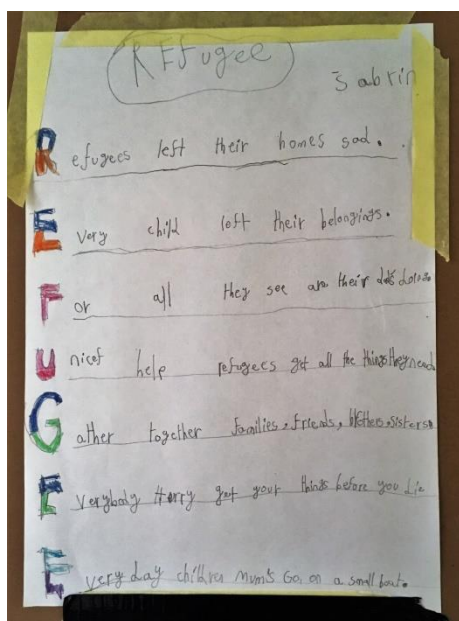 REfugee
Sabrin
Refugees left their homes sad.
Every child left their belongings.
For all they see are their
Unicef help refugees get all the things they need
Gather together families, friends, brother, sisters
Everybody Hurry get your things before you die
Every day children mum's Go, on a small boat.